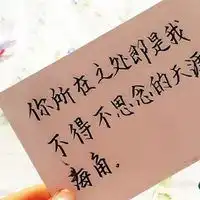 你所在之处即是我
不得不思念的天涯
海角.